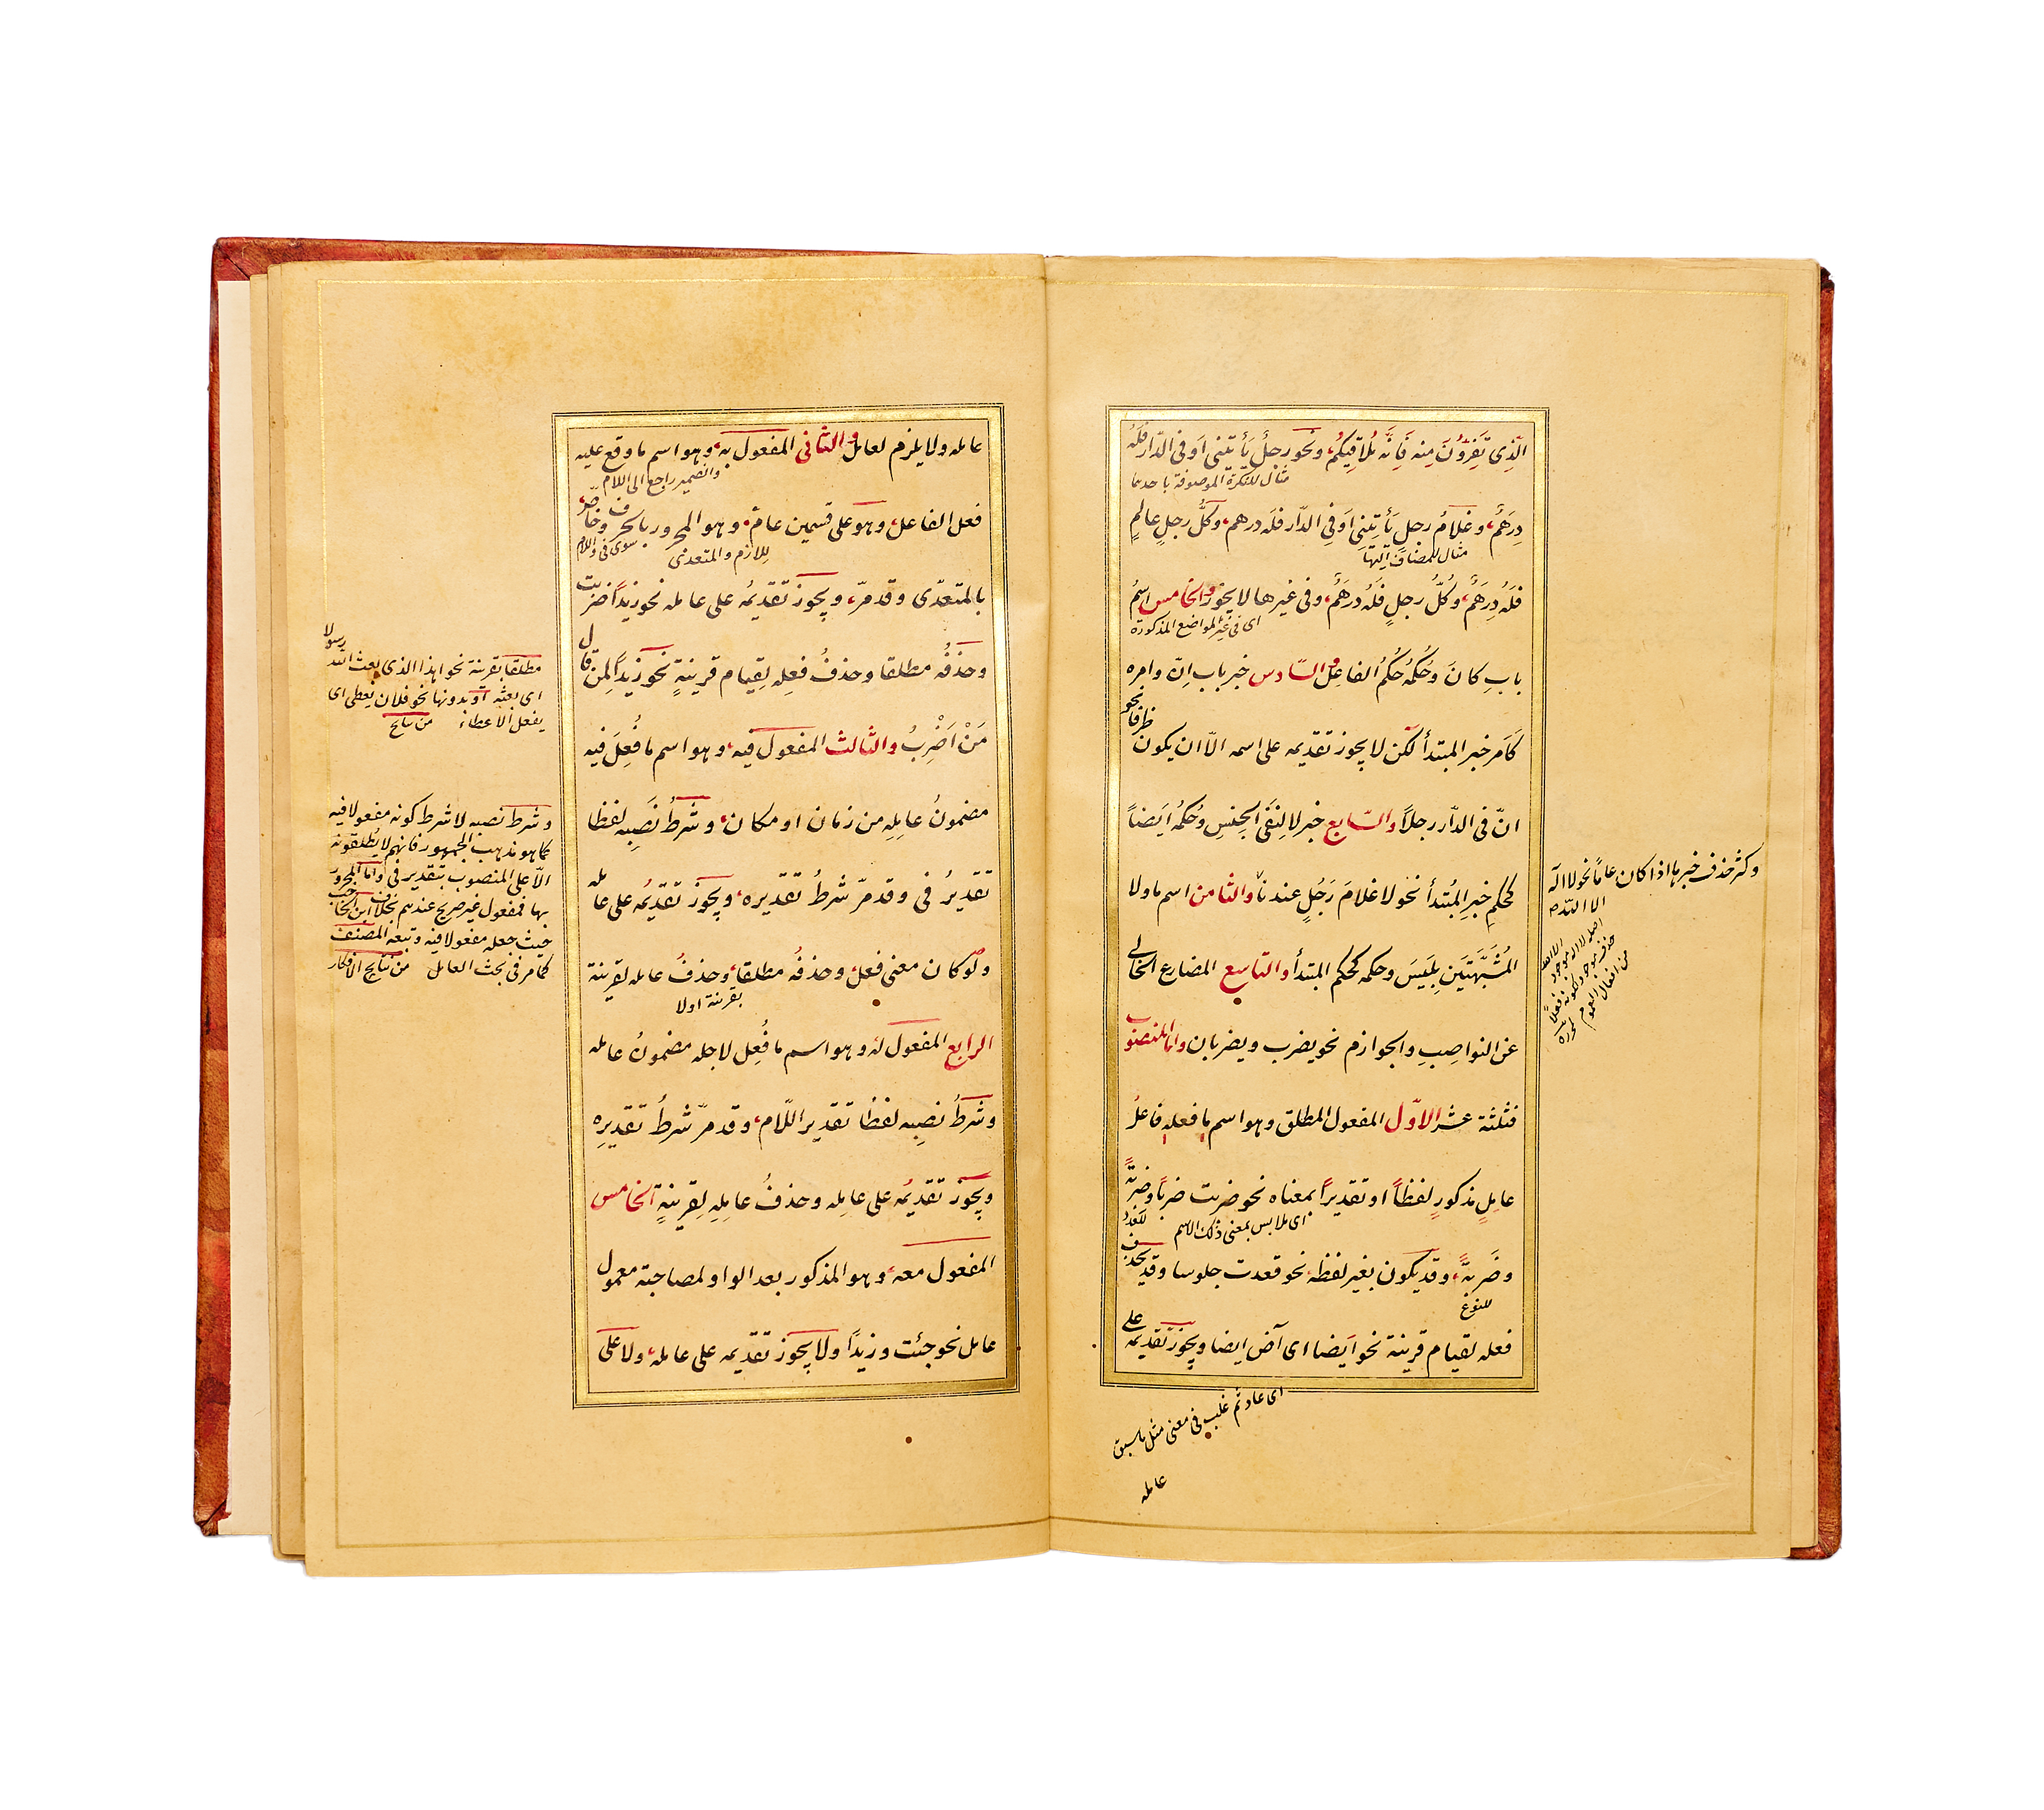 الّذِى تَفِرّوُنَ مِنه فَاِنَّه مُلاَقِيكُم، ونحو رجلٌ يَأتيَنى اَوفى الدّار فَلَهُ
مثال للنكرة الموصوفة باحدهما
دِرهَمٌ، وغلامُ رجلٍ يَأتِينى اَوفىِ الدّار فلَه درهم، وكلّ رجلٍ عالمٍ
مثال للمضاف اليها
فَلَهُ دِرهَمٌ، وكُلّ رجلٍ فلَهُ درهَمٌ، وفى غيرها لايجوز والخامس اسمُ
اى فى غير المواضع المذكورة
بابِ كانَ وحُكمُهُ حُكمُ الفاعِل والسّادس خبر باب انّ وامره
كَاَمر خبر المبتدأ لكن لايجوز تقديمه على اسمه الاّ ان يكون ظرفا نحو
انّ فى الدّار رجلاً والسّابع خبر لا لِنفَى الجِنسِ وحُكمُه ايَضاً
كحكم خبرِ المُبتدأ نحو لا غلامَ رَجُلٍ عندنا والثامن اسم ما ولا
المُشَبَّهتَين بِلَيَسَ وحكمه كحكم المبتدأ والتاسع المضارع الخالى
عن النواصِبِ والجوازم نحو يضرب ويضربان واما المنصوب
فثلثة عشر الاوّل المفعول المطلق وهو اسم ما فعله فاعلُ
عامِلٍ مذكورٍ لفظاً او تقديراً بمعناه نحو ضربت ضرباً وضربةً
اى ملابس بمعنى ذلك الاسم
للعدد
وضَربةً، وقد يكون بغير لفظه نحو قعدت جلوسا وقد يحذف
للنوع
فعله لقيام قرينة نحو ايَضا اى آض ايضا ويجوز تقديمه على
اى عاد ثم غلب فى معنى مثل ما سبق
عامله
وكثر حذف خبرها اذا كان عاماً نحو لا اله
الا الله
عامله ولايلزم لعامل والثانى المفعول به، وهو اسم ما وقع عليه
والضمير راجع الى اللام
فعل الفاعل، وهو على قسمين عامّ، وهو المجرور بالحرف وخاصّ،
للازم والمتعدى
سوى فى واللام
بالمتعدّى وقدمرّ، ويجوز تقديُمه على عامله نحو زيداً ضربت
وحذفُه مطلقا وحذفُ فعله لِقيام قرينةٍ نحو زيداً لمن قال
مَنْ اَضْرِبُ والثالث المفعول فيه، وهو اسم ما فُعِلَ فيه
مضمونُ عامِلِه من زمان او مكان، وشرطُ نَصبِه لفظا
تقديرُ فى وقدمرّ شرطُ تقديره، ويجوز تقديمُه على عامله
ولو كان معنى فعل، وحذفُه مطلقا، وحذفُ عامله لقرينة
بقرينة اولا
الرابع المفعول له وهو اسم ما فُعِل لاجله مضمونُ عامله
وشرطُ نصبِه لفظا تقدير اللّام، وقدمرّ شرطُ تقديرِه
ويجوز تقديُمه على عامِله وحذفُ عامِلِه لِقرينةٍ الخامس
المفعول معه، وهو المذكور بعد الواو لمصاحبة معمول
عامل نحو جئت وزيداً ولايجوز تقديمه على عامله، ولا على
مطلقا بقرينة نحو اهذا الذى بعث الله رسولا
اى بعثه او بدونها نحو فلان يعطى اى
يفعل الاعطاء من نتايج
وشرط نصبه لا شرط كونه مفعولا فيه
كما هو مذهب الجمهور فانهم لا يطلقونه
الاّ على المنصوب بتقدير فى واما المجرور
بها فمفعول غير صريح عندهم بخلاف ابن الحاجب
حيث جعله مفعولا فيه وتبعه المصنف
كما مر فى بحث العامل من نتايج الافكار